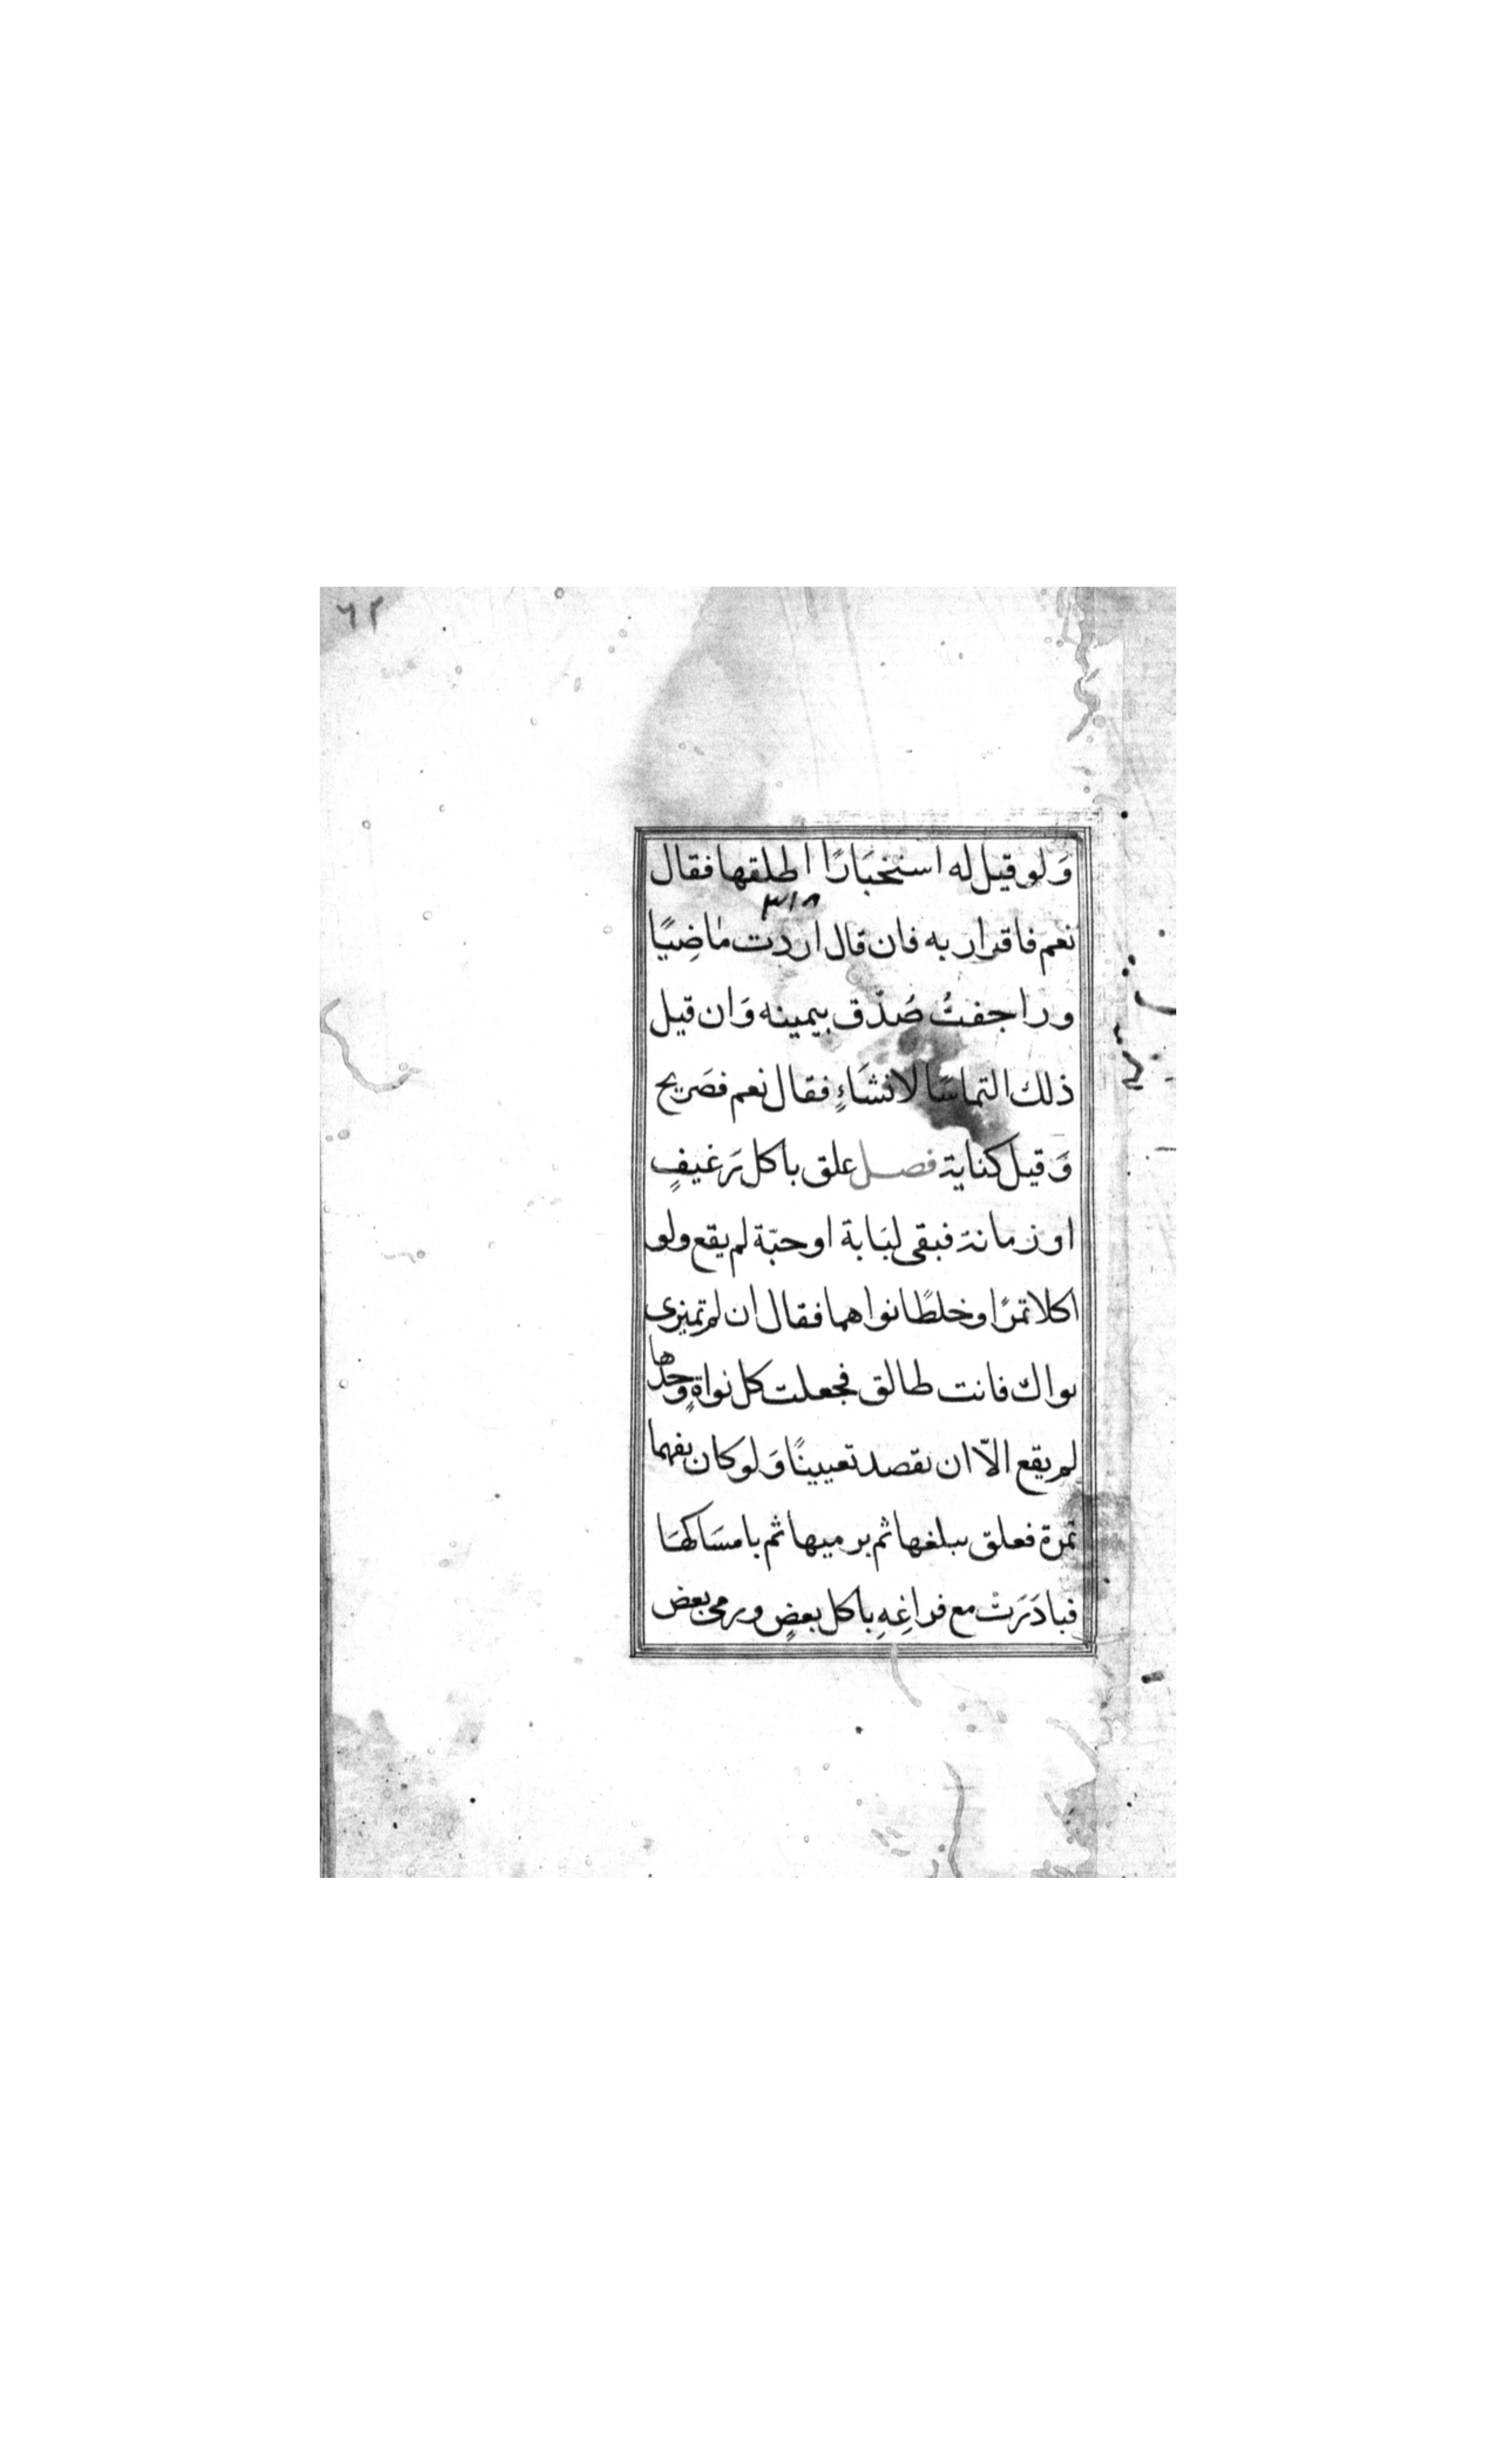 ٦٢
وَلو قيل له استخبَارًا اطلقها فقال
٣١٨
نعم فاقرار به فان قال اردت ماضِيًا
وراجفتُ صُدّق بيمينه وَان قيل
ذلك التماسًا لانشَاءٍ فقال نعم فصَريح
وَقيل كناية فصل علق باكل رَغيفٍ
او زمانة فبقى لبَابة او حبّة لم يقع ولو
اكلا تمرًا وخلطا نواهما فقال ان لم تميزى
نواك فانت طالق فجعلت كل نواةٍ وحدها
لم يقع الاّ ان يقصد تعيينًا وَلو كان بفمها
تمرة فعلق ببلغها ثم برميها ثم بامسَاكهَا
فبادَرَتْ مع فراغِهِ باكل بعضٍ ورمى بعض